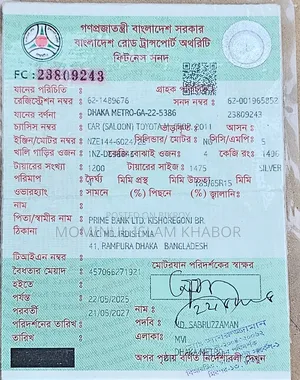 গণপ্রজাতন্ত্রী বাংলাদেশ সরকার
বাংলাদেশ রোড ট্রান্সপোর্ট অথরিটি
ফিটনেস সনদ
FC : 23809243
যানের পরিচিতি : গ্রাহক পরিচিতি
রেজিস্ট্রেশন নম্বর : 62-1489676 সনদ নম্বর : 62-001965852
যানের বর্ণনা : DHAKA METRO-GA-22-5386 23809243
চ্যাসিস নম্বর : CAR (SALOON) TOYOTA 2011 আসন :
ইঞ্জিন/মোটর নম্বর : NZE144-6024 সিলিন্ডার / মোটর : সিসি/এমপি
খালি গাড়ির ওজন : 1NZ-D বোঝাই ওজন : 4 কেজি রং 1496
টায়ারের সংখ্যা : 1200 টায়ারের সাইজ : 1475 SILVER
পরিমাপ : দৈর্ঘ্য মিমি প্রস্থ মিমি উচ্চতা মিমি
ওভারহ্যাং : সামনে (%) পিছনে (%) জ্বালানি: /65R15
নাম :
পিতা/স্বামীর নাম : PRIME BANK LTD. KISHOREGONJ BR.
ঠিকানা : A/C MD.
41, RAMPURA DHAKA BANGLADESH
MOMINUL ISLAM KHABOR
টিআইএন নম্বর :
বৈধতার মেয়াদ : 457066271921 মোটরযান পরিদর্শকের স্বাক্ষর
হইতে :
পর্যন্ত : 22/05/2025
পরবর্তী : 21/05/2027 নাম :
পরিদর্শনের তারিখ : পদবি : MD. SABRUZZAMAN
তারিখ : এলাকা: MVI
DHAKA METRO-
অপর পৃষ্ঠায় বর্ণিত নির্দেশাবলী দেখুন